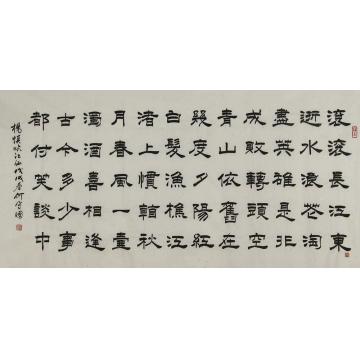 滾滾長江東
逝水浪花淘
盡英雄是非
成敗轉頭空
青山依舊在
幾度夕陽紅
白髮漁樵江
渚上慣看秋
月春風一壺
濁酒喜相逢
古今多少事
都付笑談中
楊慎臨江仙戊戌春